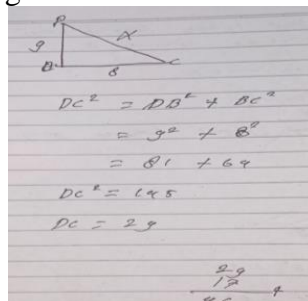 D
9
x
B
8
C
DC² = DB² + BC²
= 9² + 8²
= 81 + 64
DC² = 145
DC = 29
29